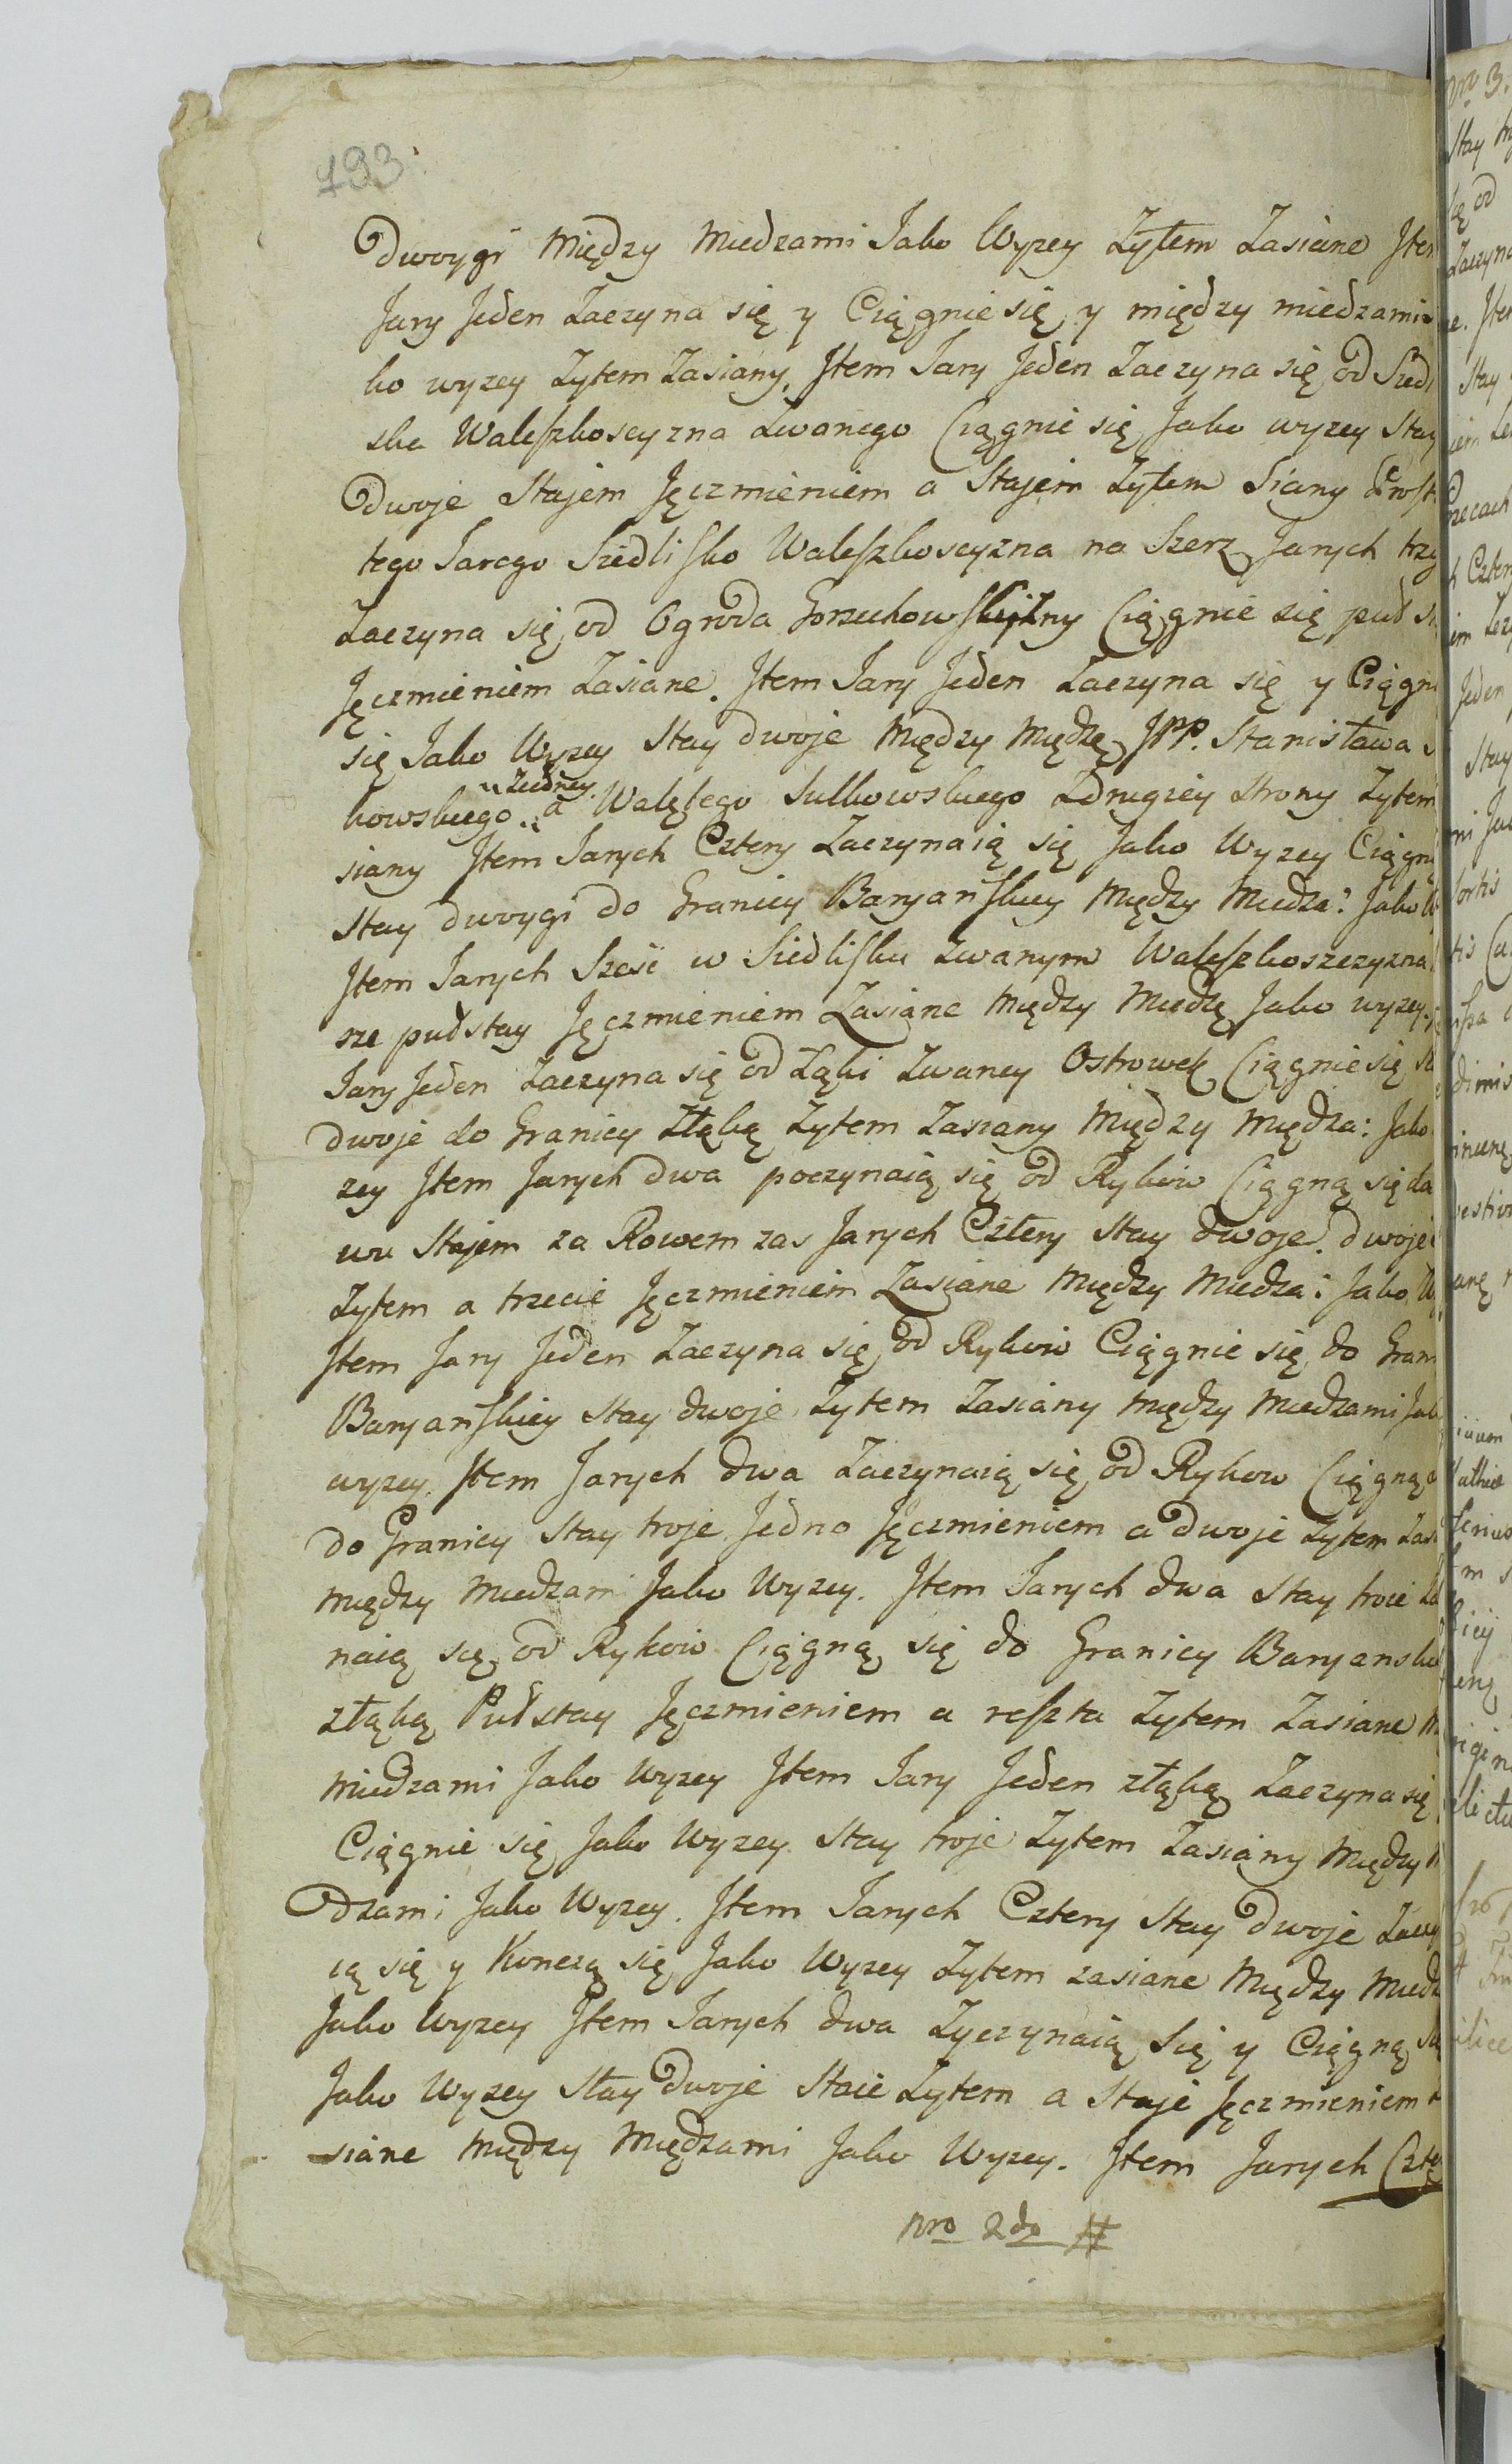 193
Dwoygi między miedzami Jako Wyzey Zytem Zasiane Item
Jary Jeden Zaczyna się y Ciągnie się y między miedzami
ko wyzey Zytem Zasiany, Item Jary Jeden Zaczyna się od Siedl
ska Waleszkoscyzna Zwanego Ciągnie się Jako wyzey Stay
Dwoje Stajem Jęczmieniem a Stajem Zytem Siany
tego Jarego Siedlisko Waleszkoscyzna na Szerz Jarych trzy
Zaczyna się od Ogroda Ciągnie się puł
Jęczmieniem Zasiane. Item Jary Jeden Zaczyna się y Ciągni
się Jako Wyzey Stay dwoje między miedzę JPP. Stanisława
kowskiego ziedney a Walętego Sulkowskiego Zdrugiey Strony Zytem
siany Item Jarych Cztery Zaczynaią się Jako Wyzey Ciągną
Stay dwoygi do Granicy Baryanskiey między miedza: Jako W
Item Jarych Szesc w Siedlisku Zwanym Waleszkoszczyzna
sze pułstay Jęczmieniem Zasiane między miedzę Jako wyzey.
Jary Jeden Zaczyna się od Łąki Zwaney Ostrowek Ciągnie się
dwoje do Granicy Złąką Zytem Zasiany między miedza: Jako
zey Item Jarych dwa poczynaią się od Rykow Ciągną się
wu Stajem za Rowem zas Jarych Cztery Stay dwoje. dwoje
Zytem a trzecie Jęczmieniem Zasiane między miedza: Jako W
Item Jary Jeden Zaczyna się od Rykow Ciągnie się do Gran
Baryanskiey Stay dwoje Zytem Zasiany między miedzami Jak
wyzey. Item Jarych dwa Zaczynaią się od Rykow Ciągną
do Granicy Stay troje Jedno Jęczmieniem a dwoje Zytem Zasi
między miedzami Jako Wyzey. Item Jarych dwa Stay troie Za
naią się od Rykow Ciągną się do Granicy Baryanski
złąką Pułstay Jęczmieniem a reszta Zytem Zasiane
miedzami Jako Wyzey Item Jary Jeden złąką Zaczyna się
Ciągnie się Jako Wyzey Stay troje Zytem Zasiany między
dzami Jako Wyzey. Item Jarych Cztery Stay dwoje Zaczy
ią się y Konczą się Jako Wyzey Zytem zasiane między miedz
Jako Wyzey Item Jarych dwa Zyczynaią Się y Ciągną
Jako Wyzey Stay dwoje Staie Zytem a Staje Jęczmieniem
siane między miedzami Jako Wyzey. Item Jarych Czte
Nro 2do #